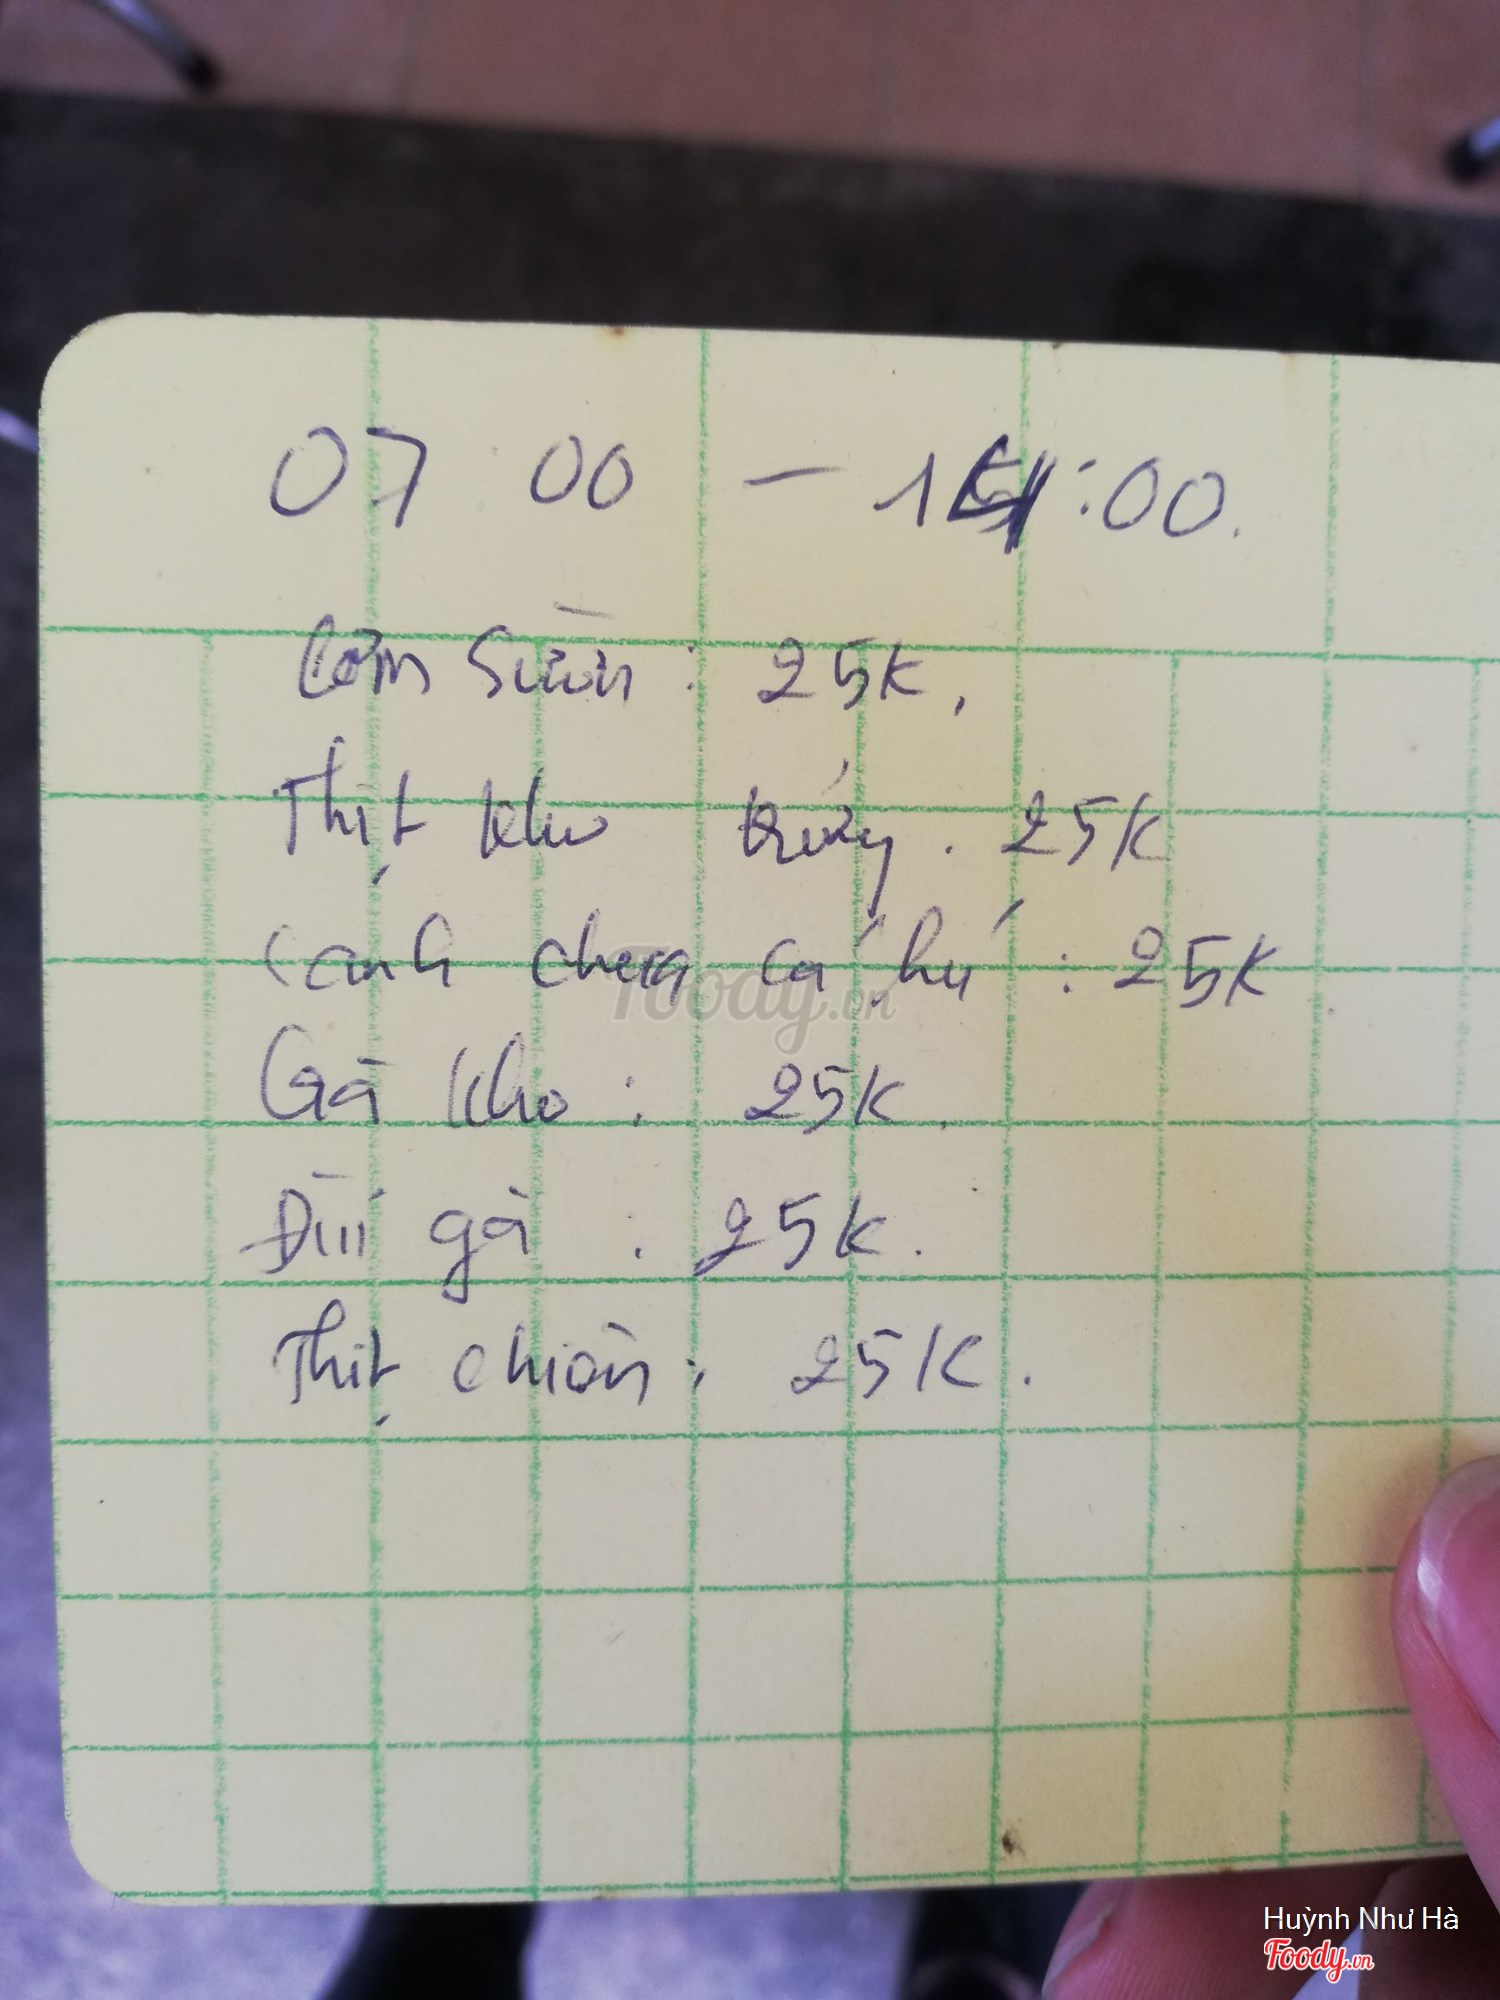 07 00 – 14:00.
Cơm Sườn: 25K.
Thịt kho trứng. 25K
Canh chua cá hú: 25K.
Gà kho: 25K.
Đùi gà: 25K.
Thịt chiên: 25K.
Foody.vn
Huỳnh Như Hà
Foody.vn